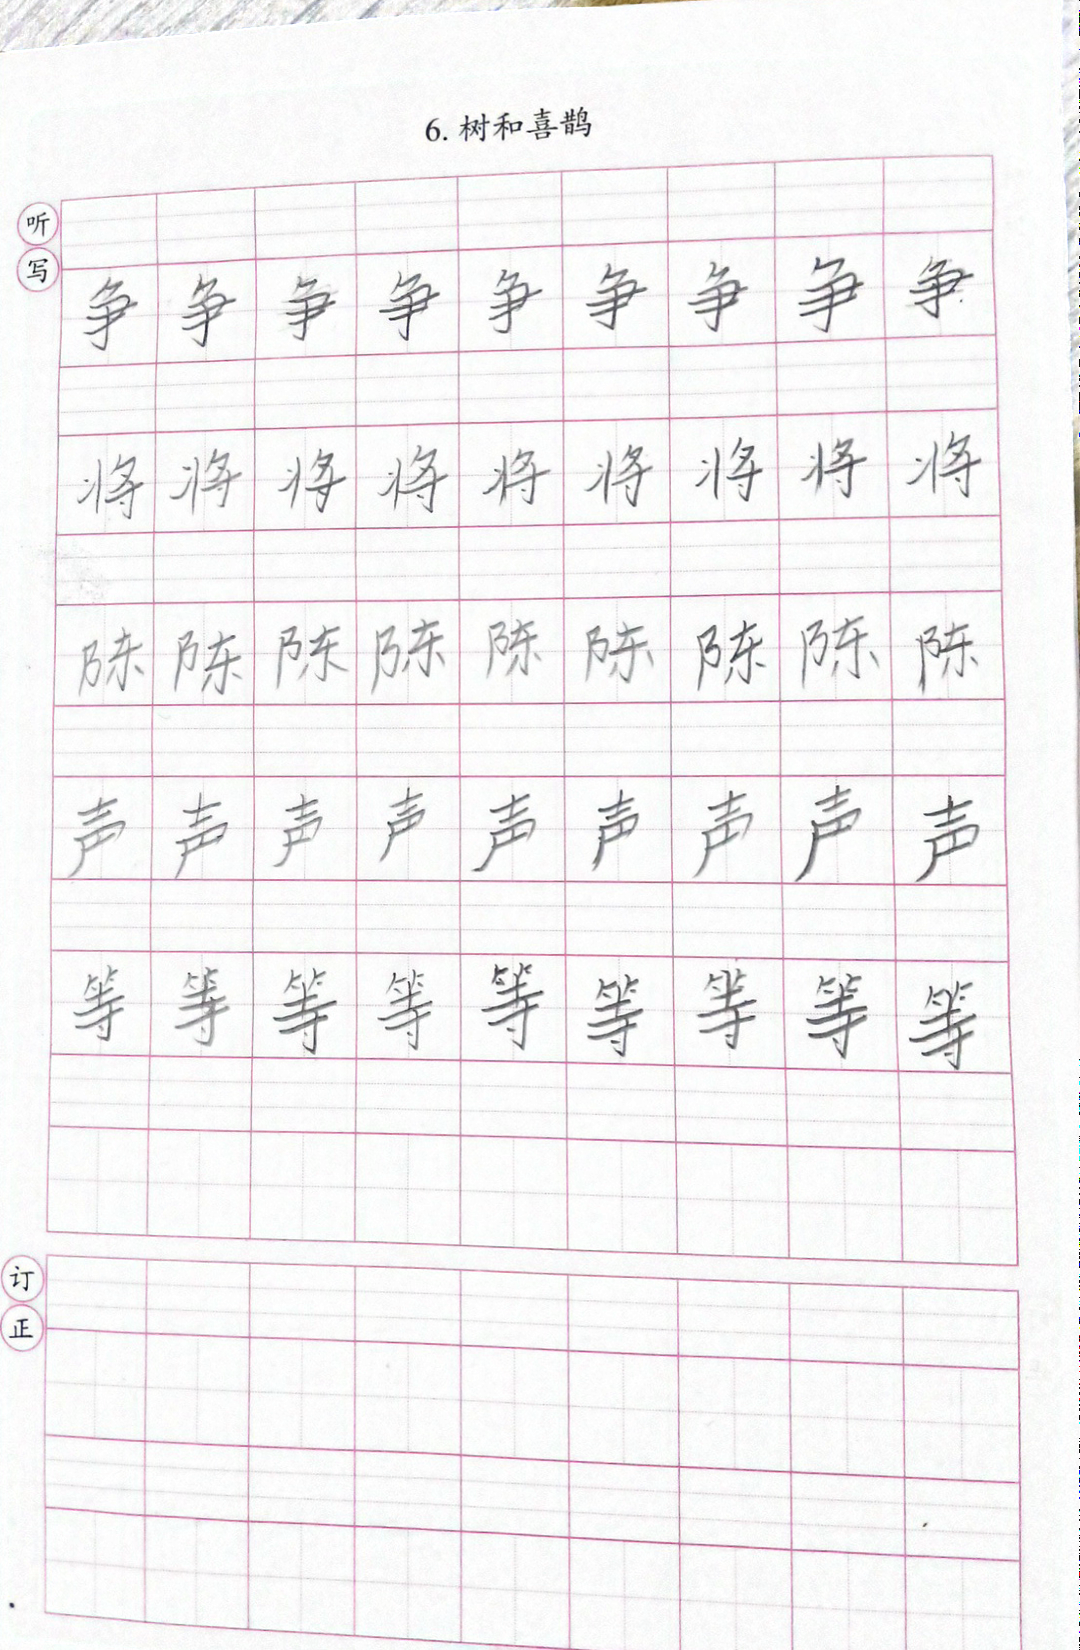 6. 树和喜鹊
听
写
争 争 争 争 争 争 争 争 争
将 将 将 将 将 将 将 将 将
陈 陈 陈 陈 陈 陈 陈 陈 陈
声 声 声 声 声 声 声 声 声
等 等 等 等 等 等 等 等 等
订
正